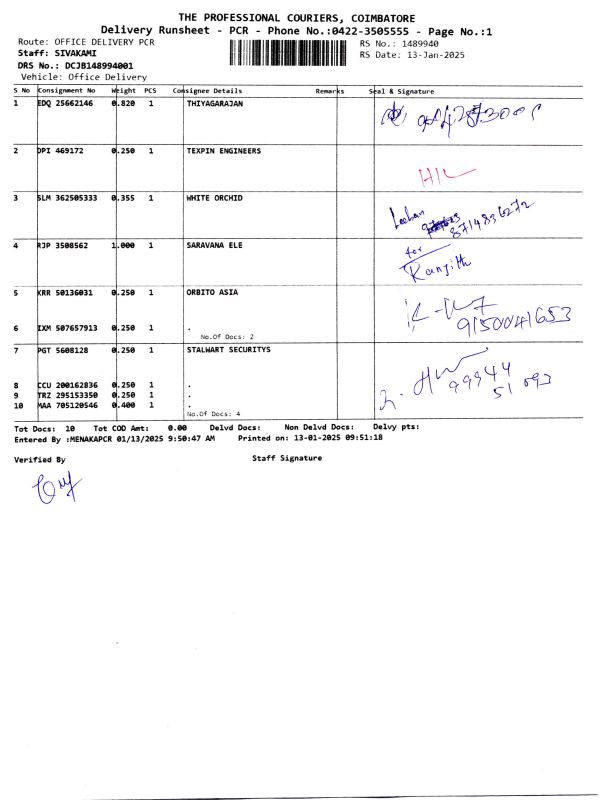 THE PROFESSIONAL COURIERS, COIMBATORE
Delivery Runsheet - PCR - Phone No.:0422-3505555 - Page No.:1
Route: OFFICE DELIVERY PCR RS No.: 1489940
Staff: SIVAKAMI RS Date: 13-Jan-2025
DRS No.: DCJB148994001
Vehicle: Office Delivery
S No Consignment No Weight PCS Consignee Details Remarks Seal & Signature
1 EDQ 25662146 0.820 1 THIYAGARAJAN
2 DPI 469172 0.250 1 TEXPIN ENGINEERS
3 SLM 362505333 0.355 1 WHITE ORCHID
8714836272
4 RJP 3508562 1.000 1 SARAVANA ELE for
Ranjith
5 KRR 50136031 0.250 1 ORBITO ASIA
9150041653
6 IXM 507657913 0.250 1 .
No.Of Docs: 2
7 PGT 5608128 0.250 1 STALWART SECURITYS
99944
8 CCU 200162836 0.250 1 . 51 093
9 TRZ 295153350 0.250 1 .
10 MAA 705120546 0.400 1 .
No.Of Docs: 4
Tot Docs: 10 Tot COD Amt: 0.00 Delvd Docs: Non Delvd Docs: Delvy pts:
Entered By :MENAKAPCR 01/13/2025 9:50:47 AM Printed on: 13-01-2025 09:51:18
Verified By Staff Signature